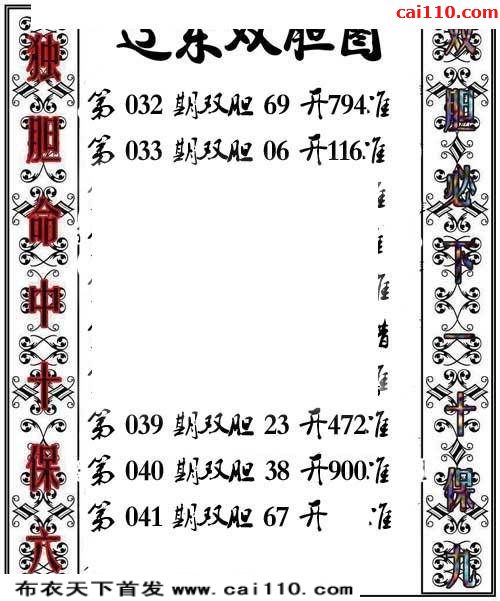 cai110.com
辽东双胆图
独胆命中十保六
第 032 期双胆 69 开794准
第 033 期双胆 06 开116准
第 039 期双胆 23 开472准
第 040 期双胆 38 开900准
第 041 期双胆 67 开 准
双胆必下一十保九
布衣天下首发 www.cai110.com